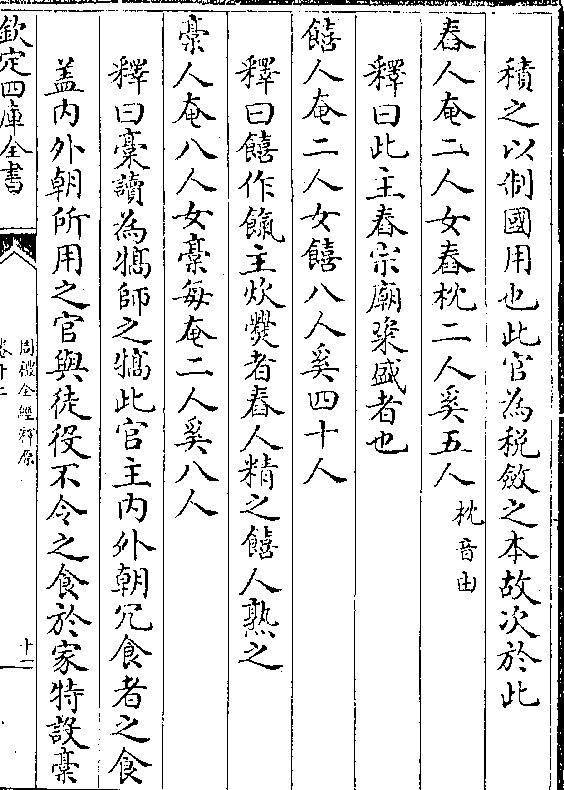 積之以制國用也此官為稅斂之本故次於此
舂人奄二人女舂枕二人奚五人枕音由
釋曰此主舂宗廟粢盛者也
饎人奄二人女饎八人奚四十人
釋曰饎作餼主炊爨者舂人精之饎人熟之
槀人奄八人女槀每奄二人奚八人
釋曰槀讀為犒師之犒此官主內外朝冗食者之食
盖內外朝所用之官與徒役不令之食於家特設槀
欽定四庫全書
周禮全經釋原
卷十二
十二